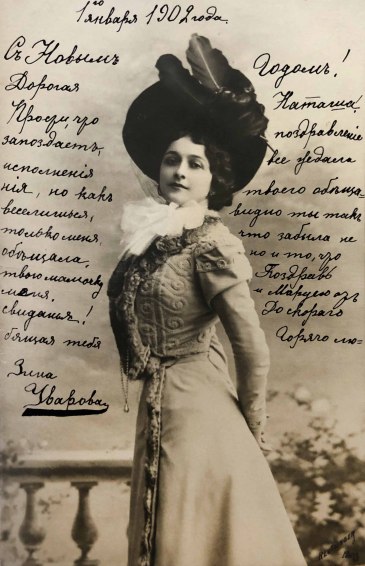 1го января 1902 года.
Съ Новымъ Годомъ!
Дорогая Наташа,
Прости, что поздравленіе
запоздаетъ, все ждала
исполненія твоего обѣща-
нія, но какъ видно ты такъ
веселишься, что забыла не
только меня, но и то, что
обѣщала. Поздравь
твою мамочку и Марусю отъ
меня. До скораго
свиданья! Горячо лю-
бящая тебя
Зина
Уварова